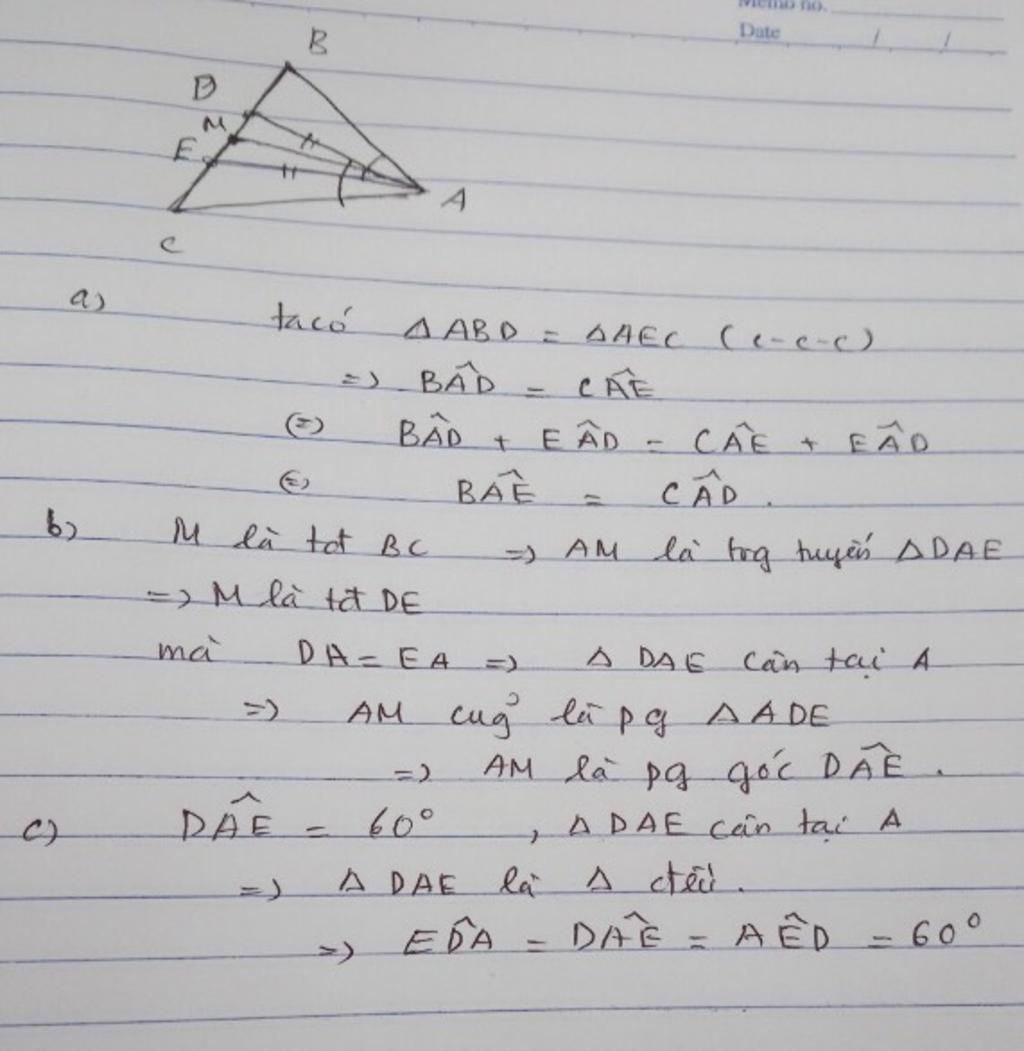 Memo no.
Date / /
B
D
M
E
A
C
a)
ta có △ABD = △AEC (c-c-c)
=> BÂD = CÂE
(=) BÂD + EÂD = CÂE + EÂD
(=) BÂE = CÂD.
b) M là tđ BC => AM là trg tuyến △DAE
=> M là tđ DE
mà DA = EA => △ DAE cân tại A
=> AM cug̉ là pg △ADE
=> AM là pg góc DÂE.
c) DÂE = 60° , △DAE cân tại A
=> △ DAE là △ đều.
=> ED̂A = DÂE = AÊD = 60°